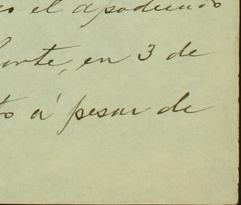 el apoderado
forte, en 3 de
to á pesar de